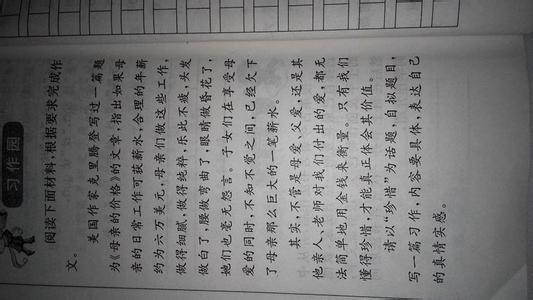 习作园
阅读下面材料，根据要求完成作
文。
美国作家克里腾登写过一篇题
为《母亲的价格》的文章，指出如果母
亲的日常工作可获薪水，合理的年薪
约为六万美元，母亲们做这些工作，
做得细腻，做得纯粹，乐此不疲，头发
做白了，腰做弯曲了，眼睛做昏花了，
她们也毫无怨言。子女们在享受母
爱的同时，不知不觉之间，已经欠下
了母亲那么巨大的一笔薪水。
其实，不管是母爱、父爱，还是其
他亲人、老师对我们付出的爱，都无
法简单地用金钱来衡量。只有我们
懂得珍惜，才能真正体会其价值。
请以“珍惜”为话题，自拟题目，
写一篇习作，内容要具体，表达自己
的真情实感。